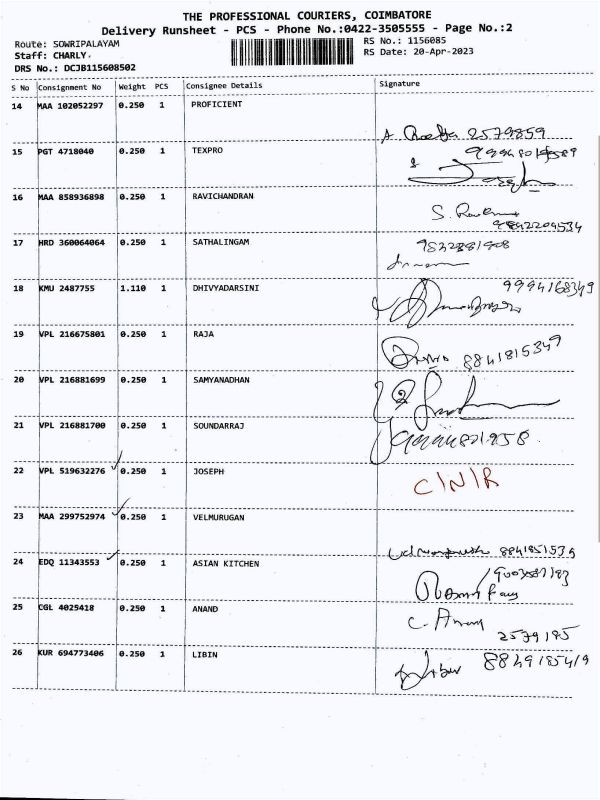 THE PROFESSIONAL COURIERS, COIMBATORE
Delivery Runsheet - PCS - Phone No.:0422-3505555 - Page No.:2
Route: SOWRIPALAYAM
RS No.: 1156085
Staff: CHARLY.
RS Date: 20-Apr-2023
DRS No.: DCJB115608502
S No Consignment No Weight PCS Consignee Details Signature
14 MAA 102052297 0.250 1 PROFICIENT
2579859
15 PGT 4718040 0.250 1 TEXPRO
16 MAA 858936898 0.250 1 RAVICHANDRAN
S.
17 HRD 360064064 0.250 1 SATHALINGAM
18 KMU 2487755 1.110 1 DHIVYADARSINI
9994168349
19 VPL 216675801 0.250 1 RAJA
8841815349
20 VPL 216881699 0.250 1 SAMYANADHAN
21 VPL 216881700 0.250 1 SOUNDARRAJ
22 VPL 519632276 0.250 1 JOSEPH
C/N/R
23 MAA 299752974 0.250 1 VELMURUGAN
24 EDQ 11343553 0.250 1 ASIAN KITCHEN
25 CGL 4025418 0.250 1 ANAND
C. Anang
2579195
26 KUR 694773406 0.250 1 LIBIN
8849185419